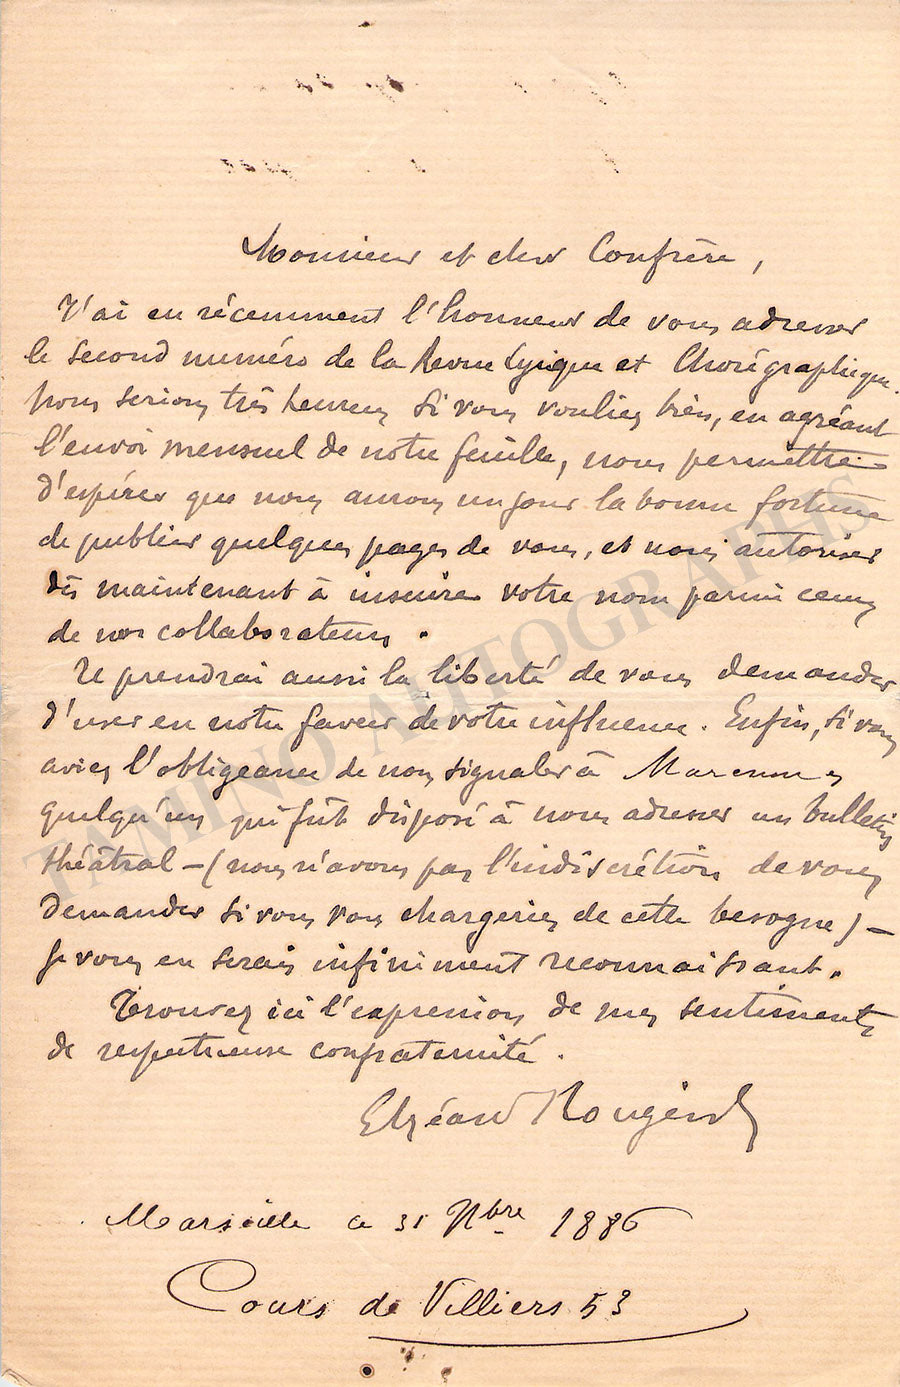 Monsieur et cher Confrère,
J'ai eu récemment l'honneur de vous adresser
le second numéro de la Revue lyrique et Chorégraphique.
Nous serions très heureux si vous vouliez bien, en agréant
l'envoi mensuel de notre feuille, nous permettre
d'espérer que nous aurons un jour la bonne fortune
de publier quelques pages de vous, et nous autoriser
dès maintenant à inscrire votre nom parmi ceux
de nos collaborateurs.
Je prendrai aussi la liberté de vous demander
d'user en notre faveur de votre influence. Enfin, si vous
aviez l'obligeance de nous signaler à Marennes
quelqu'un qui fût disposé à nous adresser un bulletin
théâtral – (nous n'avons pas l'indiscrétion de vous
demander si vous vous chargeriez de cette besogne) –
je vous en serais infiniment reconnaissant.
Trouvez ici l'expression de mes sentiments
de respectueuse confraternité.
Elzéard Rougier
Marseille ce 31 Nbre 1886
Cours de Villiers 53
TAMINO AUTOGRAPHS